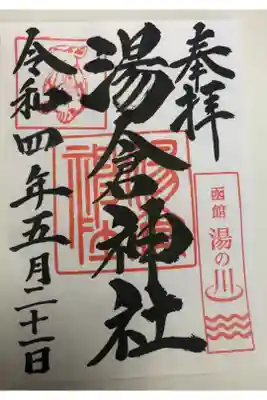 奉拝
湯倉神社
令和四年五月二十一日
函館 湯の川